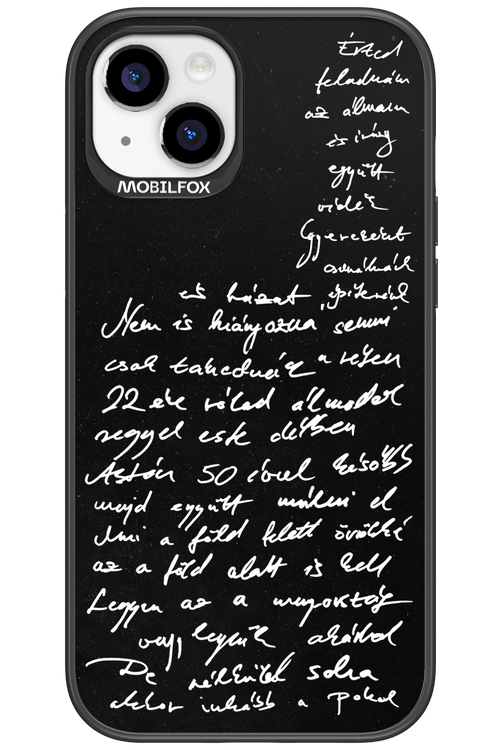 MOBILFOX
Érted
feladnám
az álmaim
és irány
együtt
vidék
Gyerekeket
csinálnánk
és házat építenénk
Nem is hiányozna semmi
csak takednék a réten
22 éve rólad álmodok
reggel este délben
Aztán 50 évvel később
majd együtt múlni el
Ami a föld felett örökké
az a föld alatt is kell
Legyen az a mennyország
vagy legyünk akárhol
De nélküled soha
akkor inkább a Pokol